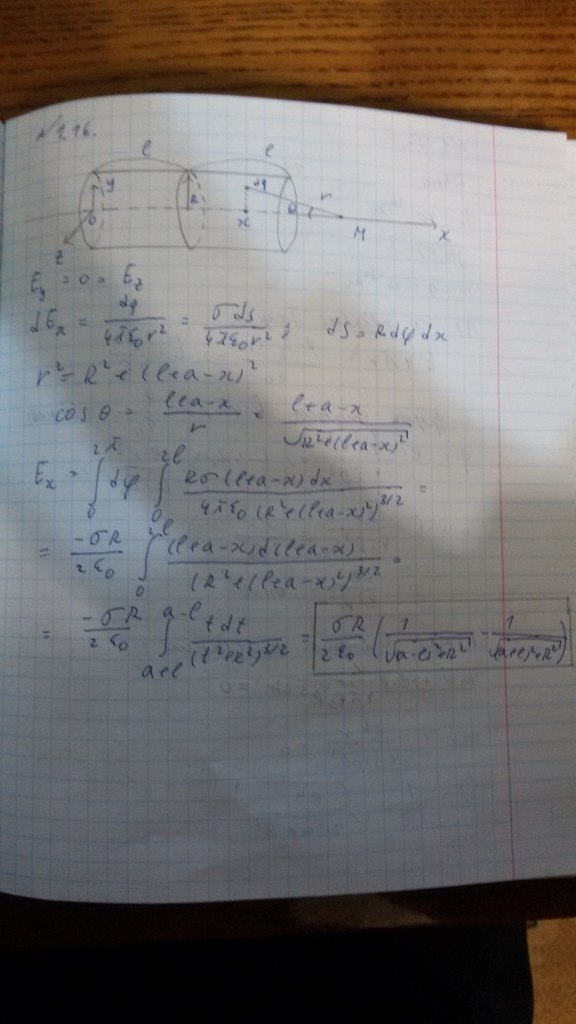 №1.16.
l l
y R dq r
0 x θ M x
z
E_y = 0 = E_z
dE_x = dq/(4πε₀r²) = σdS/(4πε₀r²); dS = Rdφdx
r² = R² + (l+a-x)²
cos θ = (l+a-x)/r = (l+a-x)/√(R²+(l+a-x)²)
E_x = ∫₀^{2π} dφ ∫₀^{2l} Rσ(l+a-x)dx/(4πε₀(R²+(l+a-x)²)^{3/2}) =
= -σR/(2ε₀) ∫₀^{2l} (l+a-x)d(l+a-x)/(R²+(l+a-x)²)^{3/2} =
= -σR/(2ε₀) ∫_{a+l}^{a-l} tdt/(t²+R²)^{3/2} = σR/(2ε₀) (1/√((a-l)²+R²) - 1/√((a+l)²+R²))